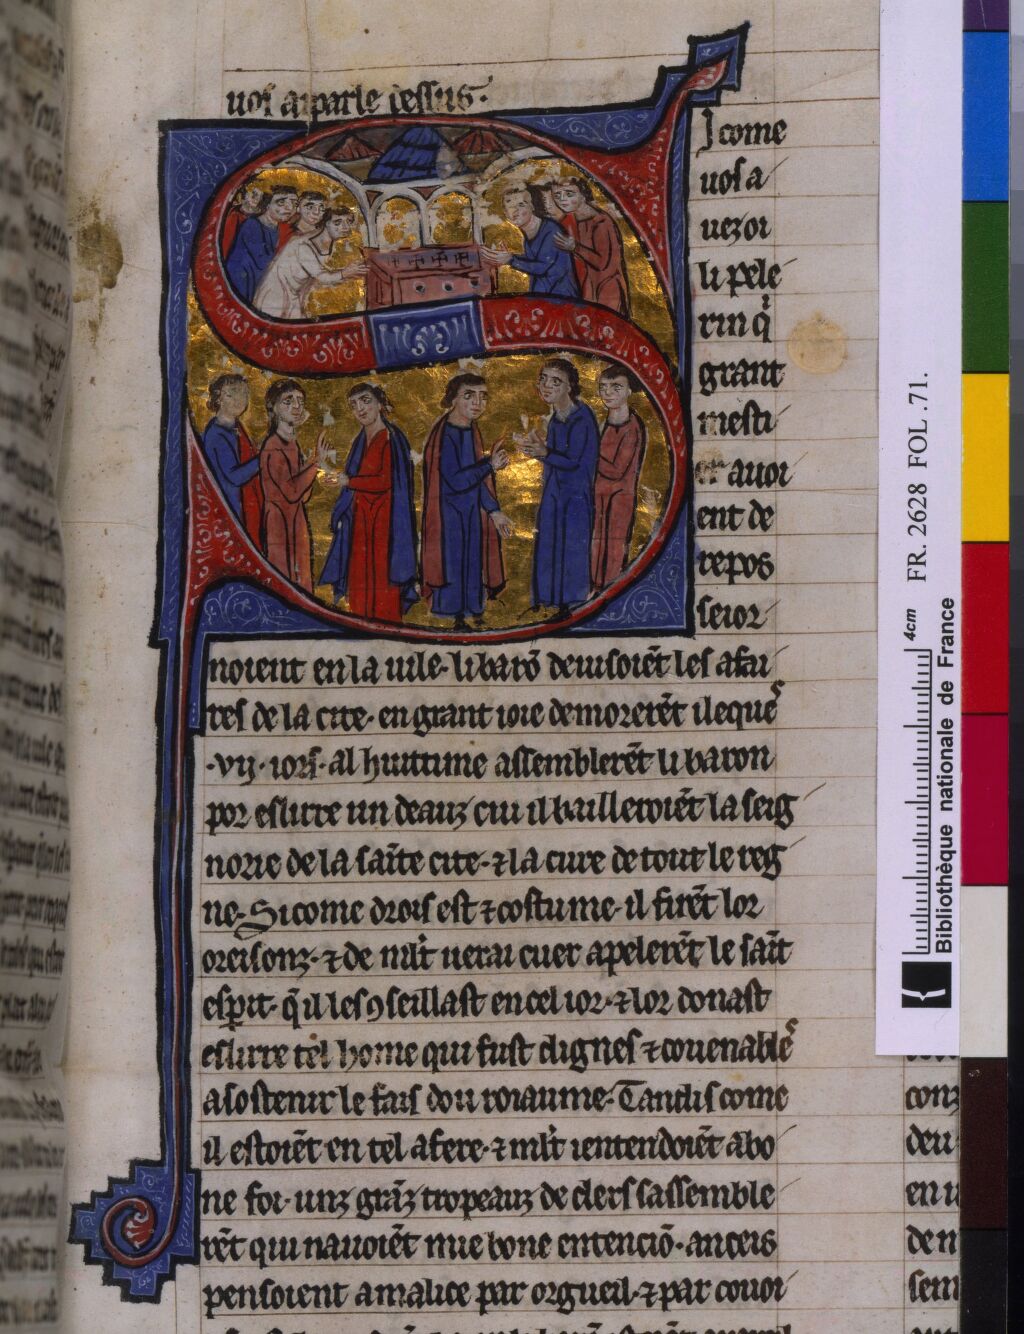 uos a parle dessus.
Si come
uos a
uez oi
li pele
rin q̄
grant
mesti
er auoi
ent de
repos
seior
noient en la uile. li barō deuisoiēt les afai
res de la cite. en grant ioie demorerēt ileques
.vij. iors. al huittime assemblerēt li baron
por eslirre un deauz cui il bailleroiēt la seig
norie de la saīte cite. ⁊ la cure de tout le reg
ne. Si come drois est ⁊ costume. il firēt lor
oreisonz. ⁊ de ml't uerai cuer apelerēt le saīt
esp̄it. q̄ il les ꝯseillast en cel ior. ⁊ lor donast
eslirre tel home qui fust dignes ⁊ couenables
a sostenir le fais dou roiaume. Tandis come
il estoiēt en tel afere. ⁊ ml't i entendoiēt a bo
ne foi. unz grāz tropeauz de clers sassemble
rēt qui nauoiēt mie bone entenciō. anceis
pensoient a malice par orgueil. ⁊ par couoi
conz
deu
en u
de n
sem
FR. 2628 FOL .71.
4cm
Bibliothèque nationale de France